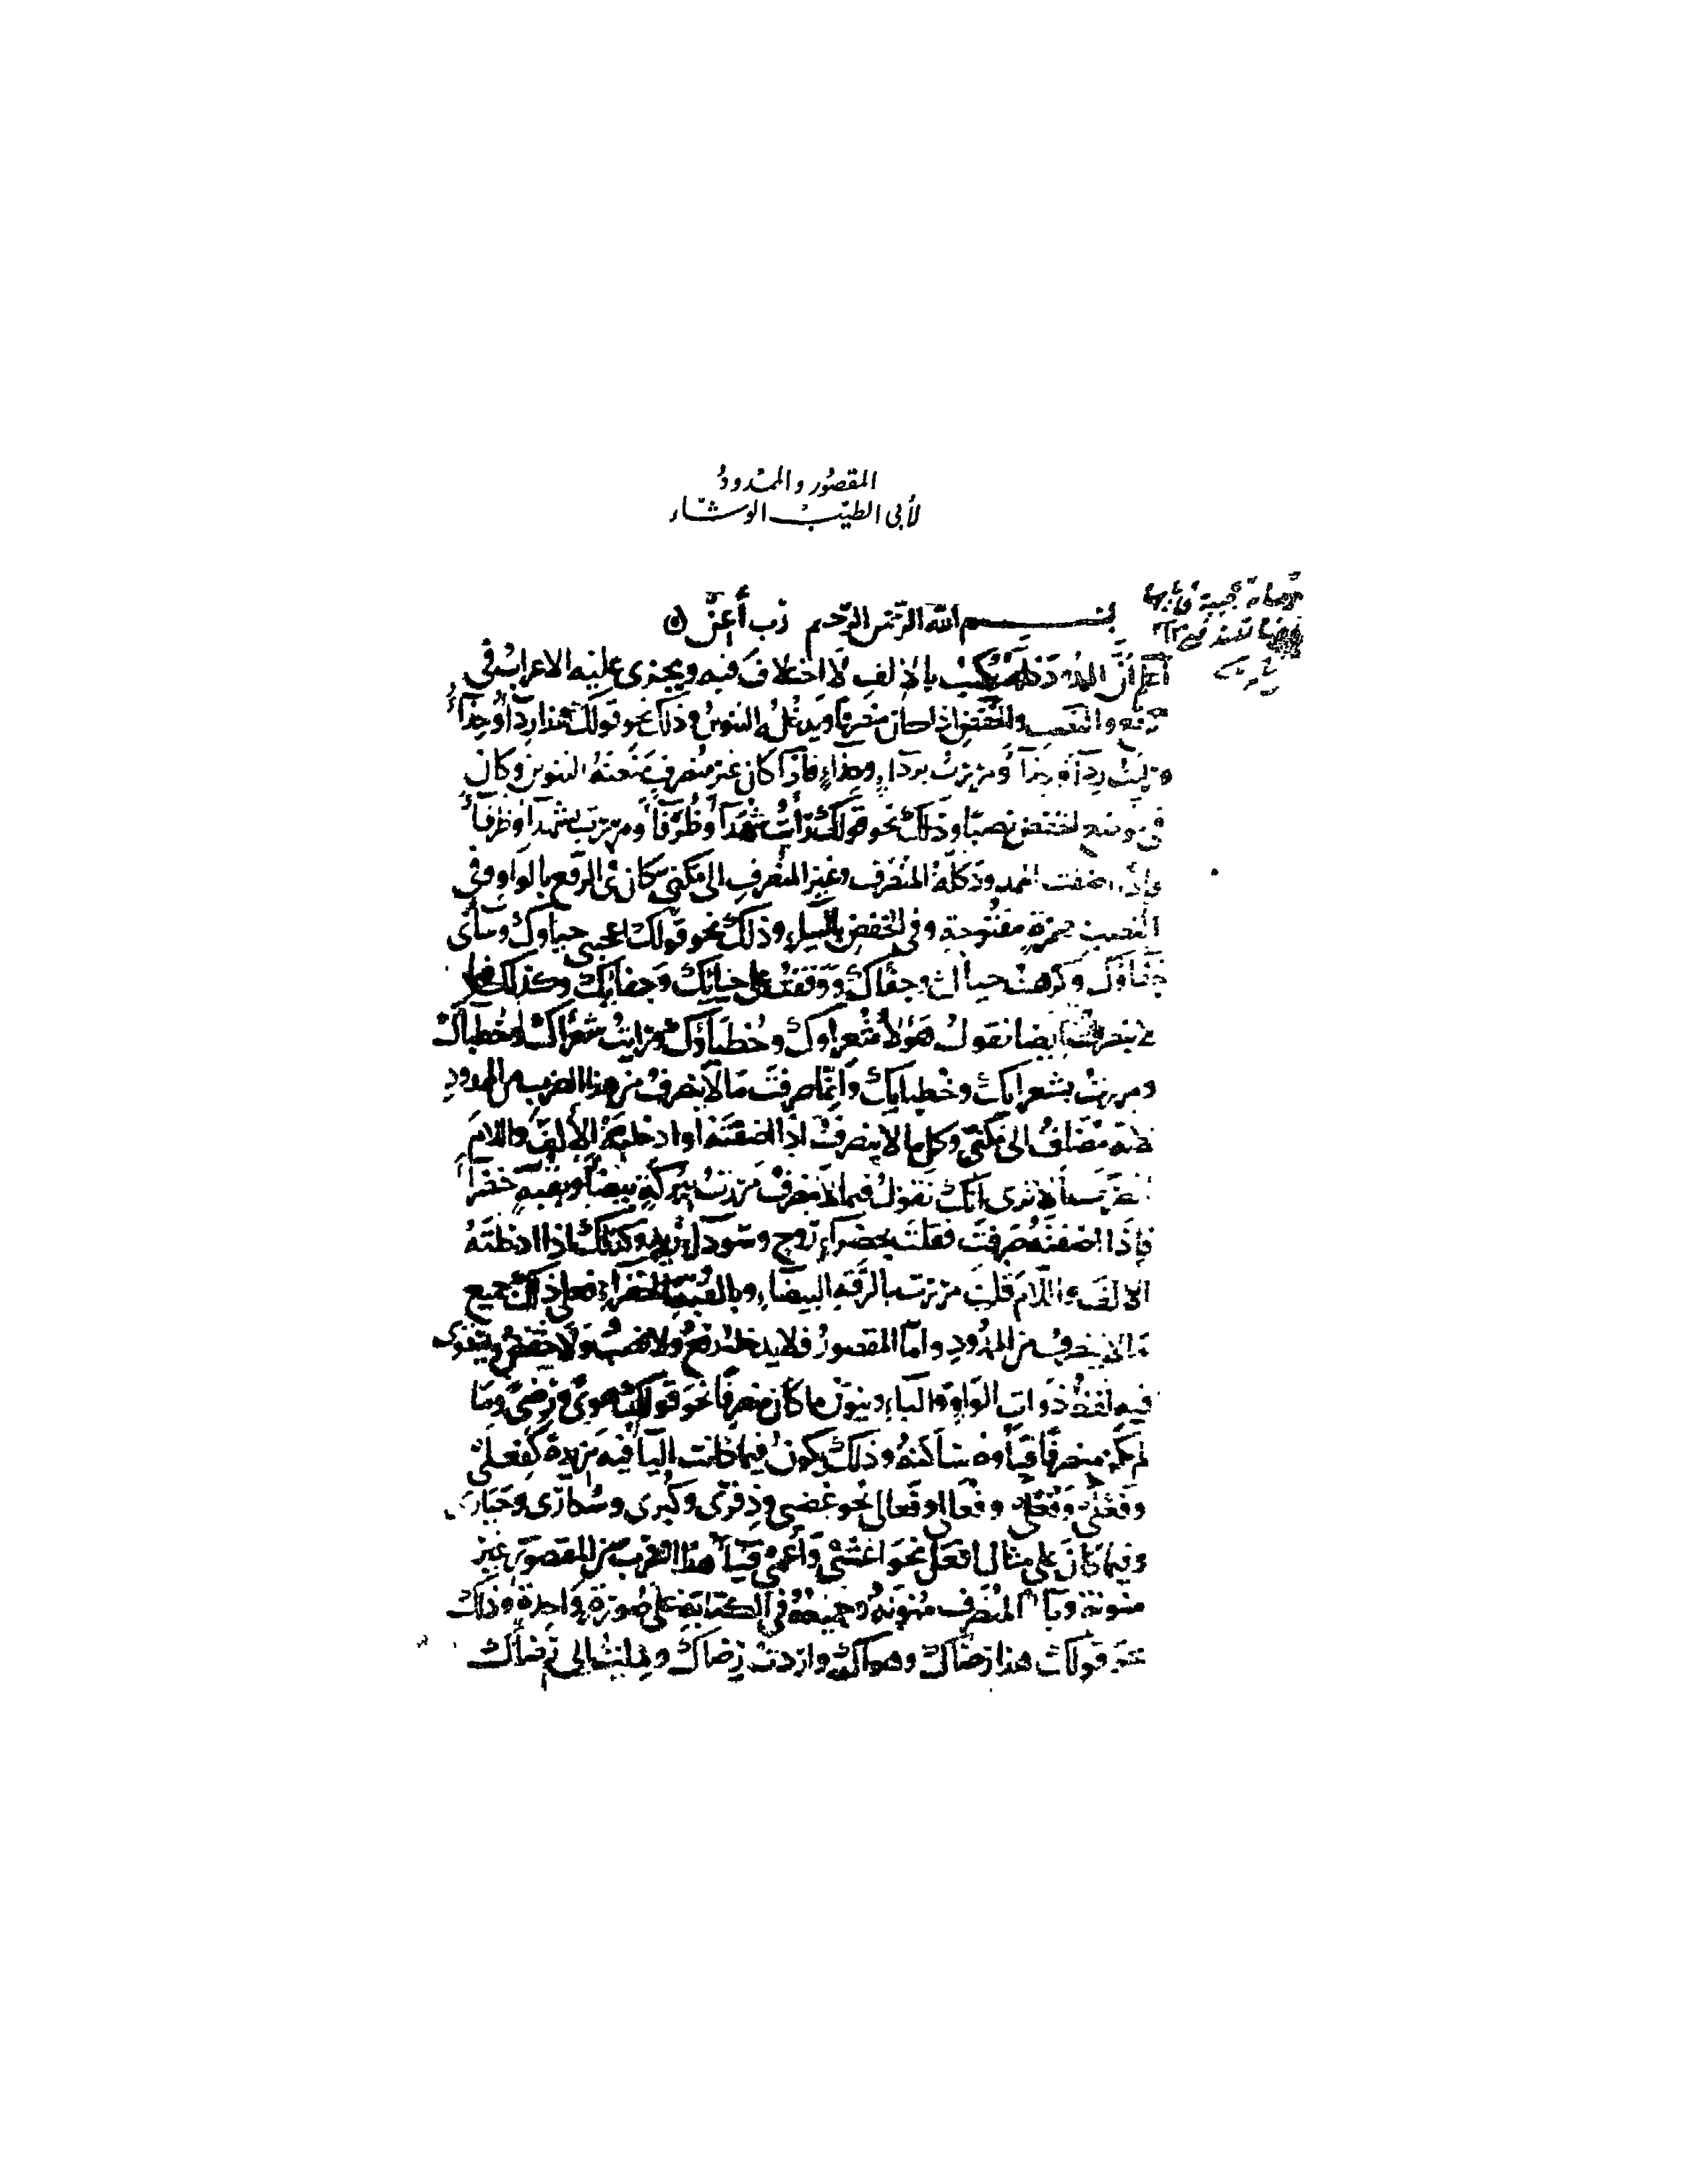 المقصُور والممْدودُ
لأبى الطيّبْ الوشّاء
بسم الله الرحمن الرحيم رب أعن
اعلم أن الممدود كله يكتب بالالف لا اختلاف فيه ويجرى عليه الاعراب في
رفعه والنصب والخفض اذا كان منصرفا ويدخله التنوين وذلك نحو قولك هذا ردآء وحذآء
ورأيت ردآء وحذآء ومررت بردآء وحذآء فاذا كان غير منصرف منعته التنوين وكان
في موضع الخفض نصبا وذلك نحو قولك رأيت شهدآء وظرفآء ومررت بشهدآء وظرفآء
واذا اضفت الممدود كله المنصرف وغير المنصرف الى مكني كان في الرفع بالواو وفي
النصب بهمزة مفتوحة وفي الخفض بالياء وذلك نحو قولك اعجبني حياوك وساني
جفاوك وكرهت حياك وجفاك ووقفت على حيايك وجفايك وكذلك ما
لا ينصرف ايضا تقول هولاء شعراوك وخطباوك ورايت شعراك وخطباك
ومررت بشعرايك وخطبايك وانما صرفت ما لا ينصرف من هذا الضرب من الممدود
لانه مضاف الى مكني وكل ما لا ينصرف اذا اضفته او ادخلت عليه الالف واللام
الا ترى انك تقول فيما لا ينصرف مررت ببركة بيضآء وبقبة خضرآ
فاذا اضفته صرفت فقلت بخضراء زوج وسودآء زيد وكذلك اذا ادخلته
الالف واللام قلت مررت بالرقة البيضاء وبالقبة الخضرآء فعلى ذلك جميع
ما لا ينصرف من الممدود واما المقصور فلا يدخله رفع ولا نصب ولا خفض ويستوى
فيه لفظ ذوات الواو والياء وينون ما كان منصرفا نحو قولك هوى ورضى وما
لم يكن منصرفا فياوه ساكنة وذلك يكون فيما كانت اليآ فيه مزيدة كفعلى
وفعلى وفعلى وفعالى وفعالى نحو غضبى وذفرى وكبرى وسكارى وحبارى
وفيما كان على مثال افعل نحو اعشى واعمى فيآ هذا الضرب من المقصور غير
منونة ويآ المنصرف منونة وجميعه في الكتابة على صورة واحدة وذلك
نحو قولك هذا رضاك وهواك واردت رضاك وملت الى رضاك